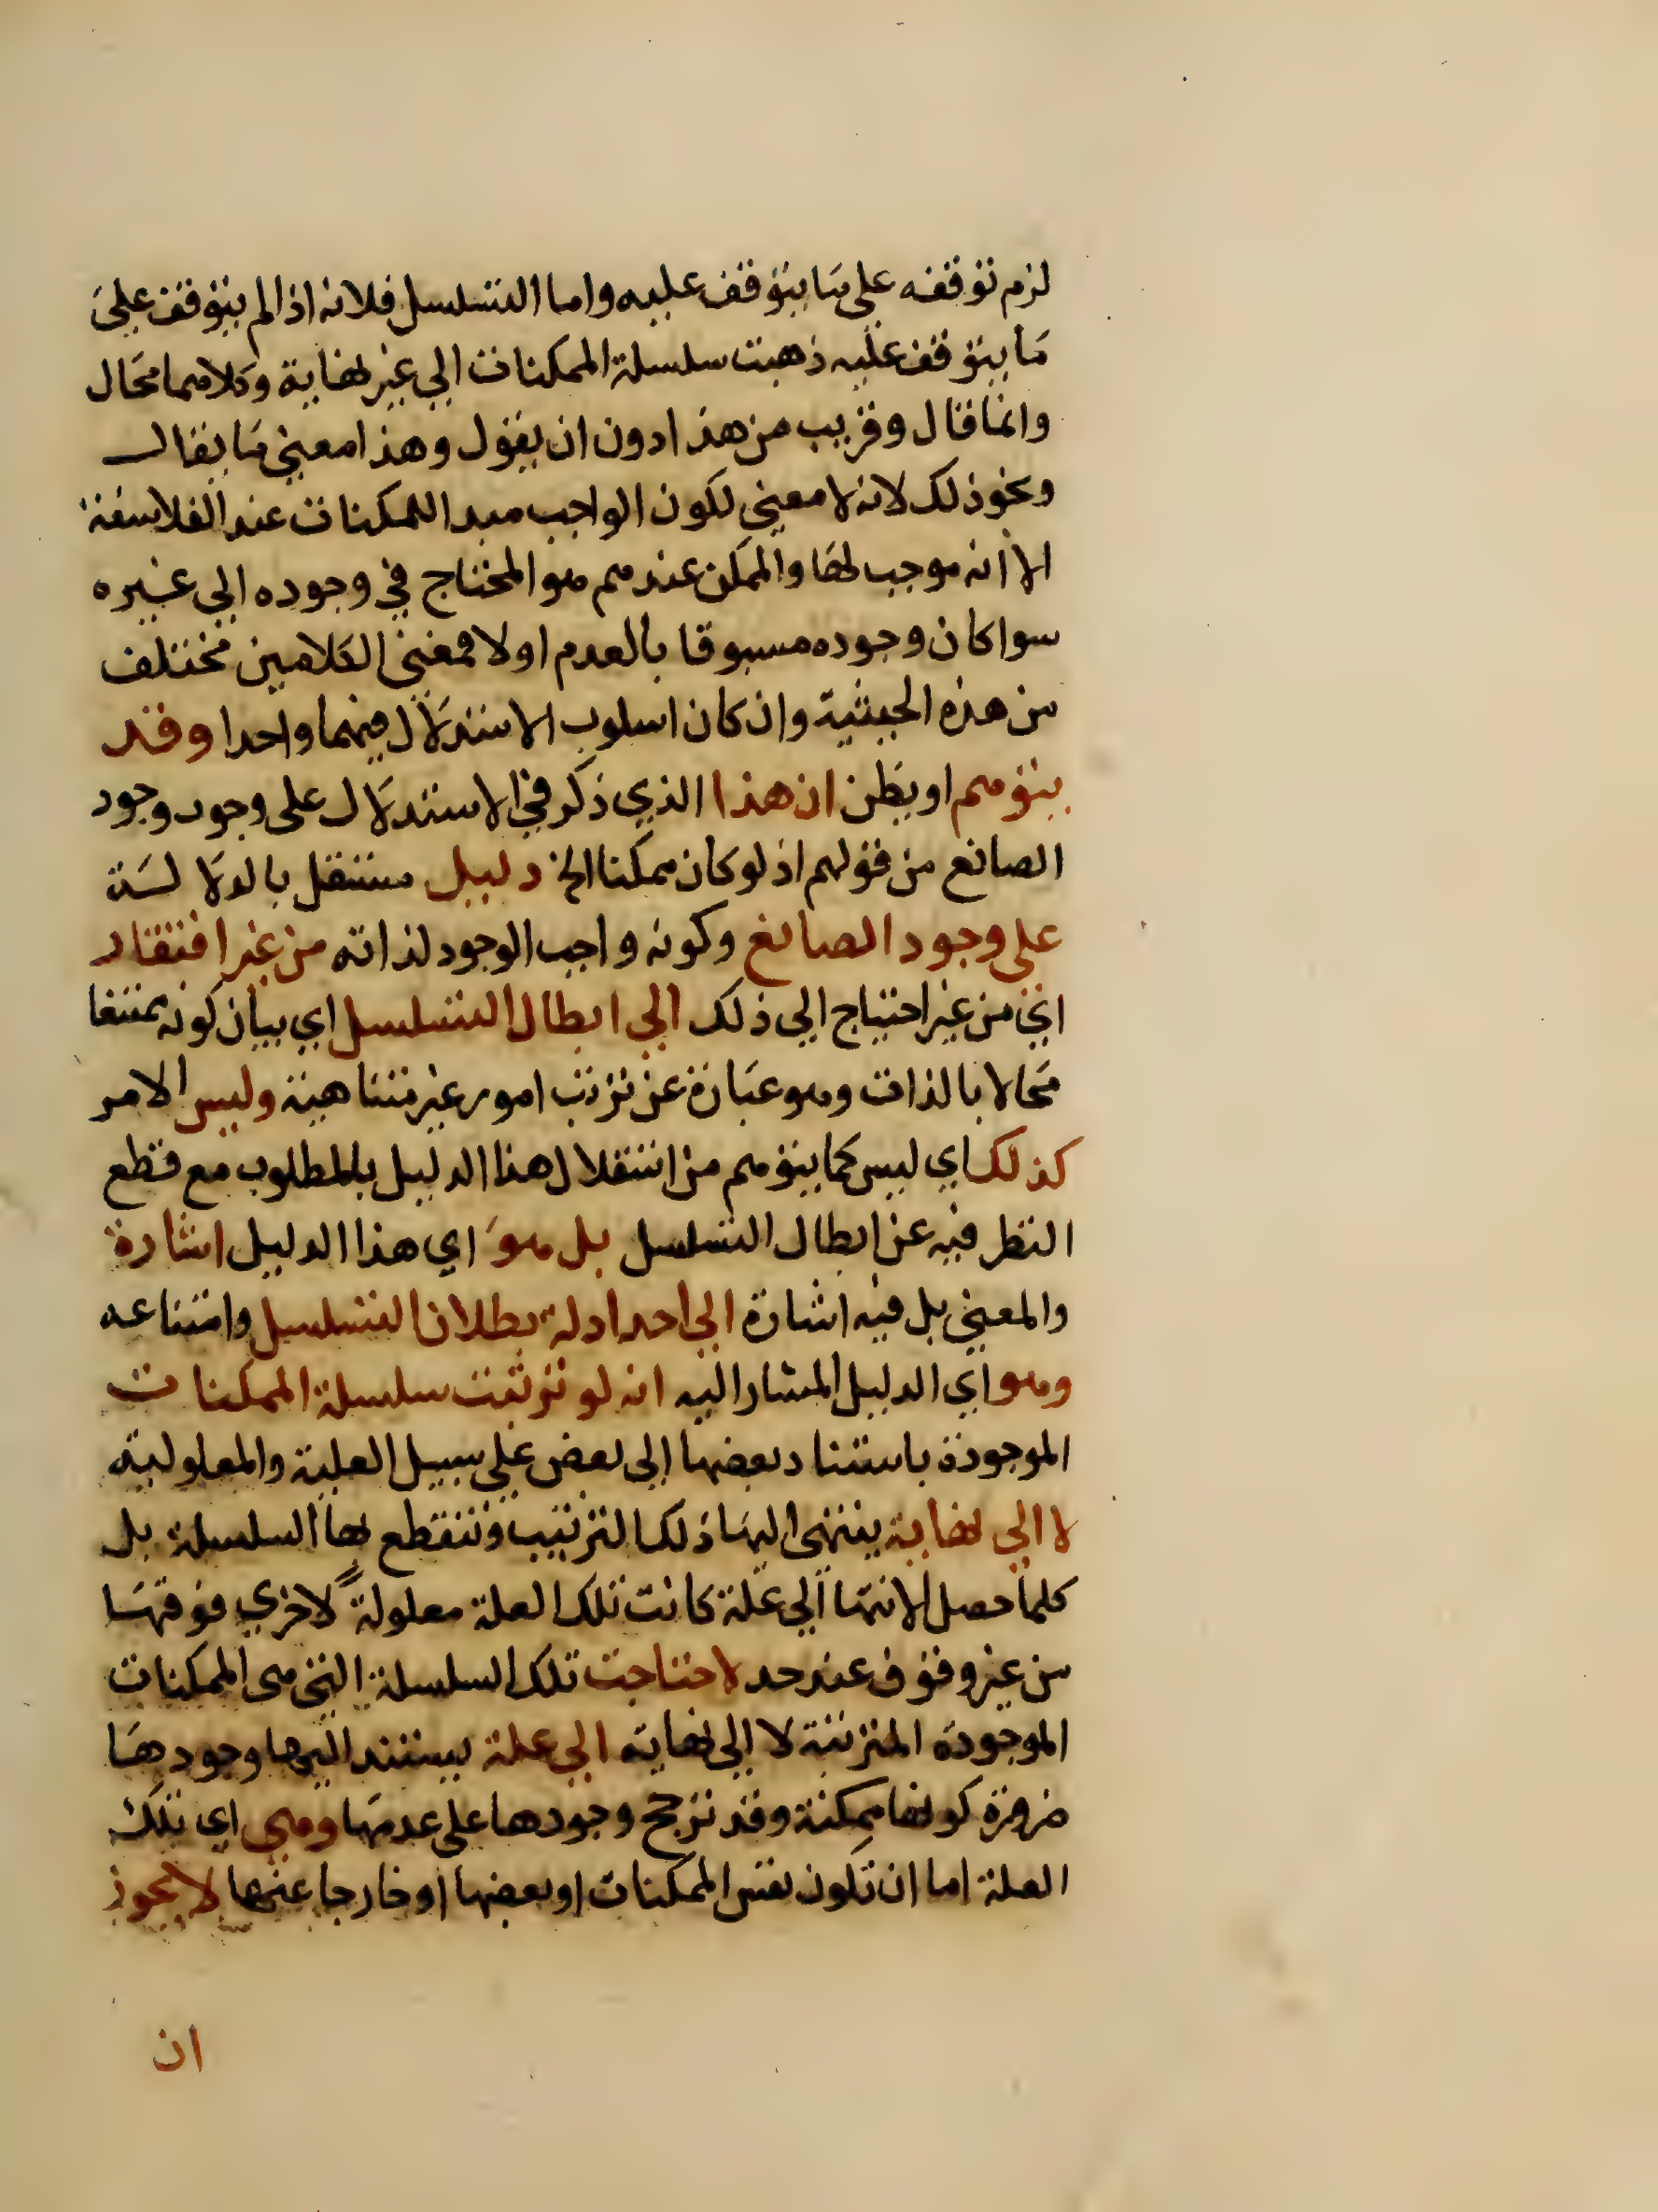 لزم توقفه على ما يتوقف عليه واما التسلسل فلانه اذا لم يتوقف على
ما يتوقف عليه ذهبت سلسلة الممكنات الي غير نهاية وكلاهما محال
وانما قال وقريب من هذا دون ان يقول وهذا معني ما يقال
ونحو ذلك لانه لا معني لكون الواجب مبدا للمكنات عند الفلاسفة
الا انه موجب لها والممكن عندهم هو المحتاج في وجوده الي غيره
سوا كان وجوده مسبوقا بالعدم اولا فمعنى الكلامين مختلف
من هذه الحيثية وان كان اسلوب الاستدلال فيهما واحدا وقد
يتوهم او يظن ان هذا الذي ذكر في الاستدلال على وجوب وجود
الصانع من قولهم اذ لو كان ممكنا الخ دليل مستقل بالدلالة
على وجود الصانع وكونه واجب الوجود لذاته من غير افتقار
اي من غير احتياج الي ذلك الي ابطال التسلسل اي بيان كونه ممتنعا
محالا بالذات وهو عبارة عن ترتب امور غير متناهية وليس الامر
كذلك اي ليس كما يتوهم من استقلال هذا الدليل بالمطلوب مع قطع
النظر فيه عن ابطال التسلسل بل هو اي هذا الدليل اشارة
والمعني بل فيه اشارة الي احد ادلة بطلان التسلسل وامتناعه
وهو اي الدليل المشار اليه انه لو ترتبت سلسلة الممكنات
الموجودة باستناد بعضها الي بعض على سبيل العلية والمعلولية
لا الي نهاية ينتهى اليها ذلك الترتيب وتنقطع بها السلسلة بل
كلما حصل الانتها الي علة كانت تلك العلة معلولة لاخري فوقها
من غير وقوف عند حد لاحتاجت تلك السلسلة التي هى الممكنات
الموجودة المترتبة لا الي نهاية الي علة يستند اليها وجودها
ضرورة كونها ممكنة وقد ترجح وجودها على عدمها وهي اي تلك
العلة اما ان تكون نفس الممكنات او بعضها او خارجا عنها لا يجوز
ان